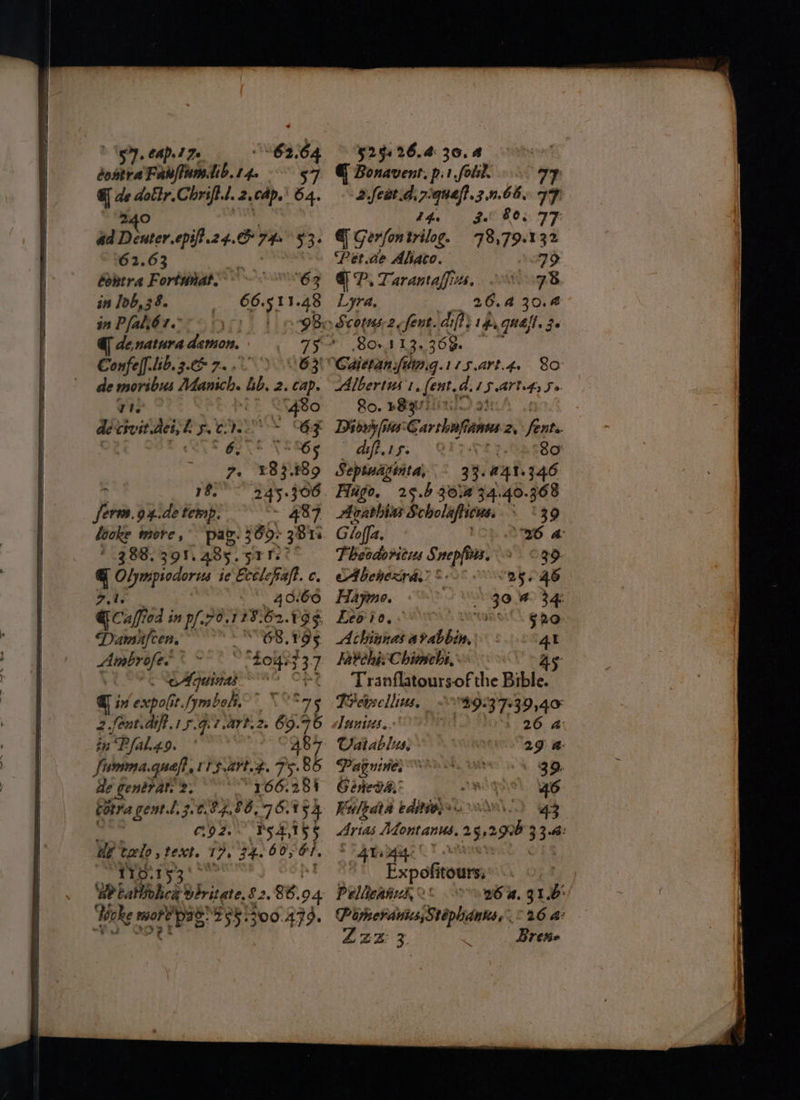 57. cap.17. 62.64
contra Faustum.lib.14. 57
¶ de doctr.Christ.l.2.cap. 64.
240
ad Deuter.epist.24.& 74. 53.
62.63
contra Fortunat. 63
in Iob,38. 66.511.48
in Psal.61. 98
¶ de natura dæmon. 75
Confess.lib.3.& 7. 63
de moribus Manich. lib. 2. cap.
480
de civit.dei, l. 5. c.1. 63
6. 65
7. 183.189
18. 245.306
serm.94.de temp. 487
looke more, pag. 369. 381.
388.391.485.511.
¶ Olympiodorus in Ecclesiast. c.
7.1. 40.60
¶ Cassiod in ps.70.118.62.195
Damascen. 68.195
Ambrose. 404.337
Aquinas
¶ in exposit.symboli. 75
2.sent.dist.15.q.1.art.2. 69.76
in Psal.49. 487
summa.quest,115.art.4. 75.86
de generat. 2. 166.281
cōtra gent.l.3.c.84,86,76.154
c.92. 154,155
de cœlo, text. 17, 34. 60,61.
110.153
de catholica veritate.82.86.94
looke more pag. 255.300.479.
525.26.a 30.a
¶ Bonavent. p.1.folil. 77
2.sent.d.7.quest.3.n.66. 77
14. 3. 80. 77
¶ Gersontrilog. 78,79.132
Pet.de Aliaco. 79
¶ P. Tarantassius. 78
Lyra. 26.a 30.a
Scotus 2. sent. dist. 14. quest. 3.
80.113.369.
Caietan.sum.q.115.art.4. 80
Albertus 1. sent.d.15.art.4, 5.
80. 183
Dionysius Carthusianus 2. sent.
dist.15. 80
Septuaginta, 33.a41.346
Hugo. 25.b 30.a 34.40.368
Agathias Scholasticus. 39
Glossa. 26 a
Theodoricus Snepfius. 39
Abenezra. 25. 46
Haymo. 30 a 34
Leo 10. 520
Achinnas a rabbin, 41
Iarchi Chimchi, 45
Translatours of the Bible.
Tremellius. 29.37.39,40
Iunius. 26 a
Vatablus, 29 a
Pagnine, 39.
Geneva, 46
Vulgata editio, 43
Arias Montanus. 25,29.b 33.a
41.44
Expositours.
Pellicanus, 26 a. 31.b
Pomeranus, Stephanus, 26 a
Zzz 3
Brene